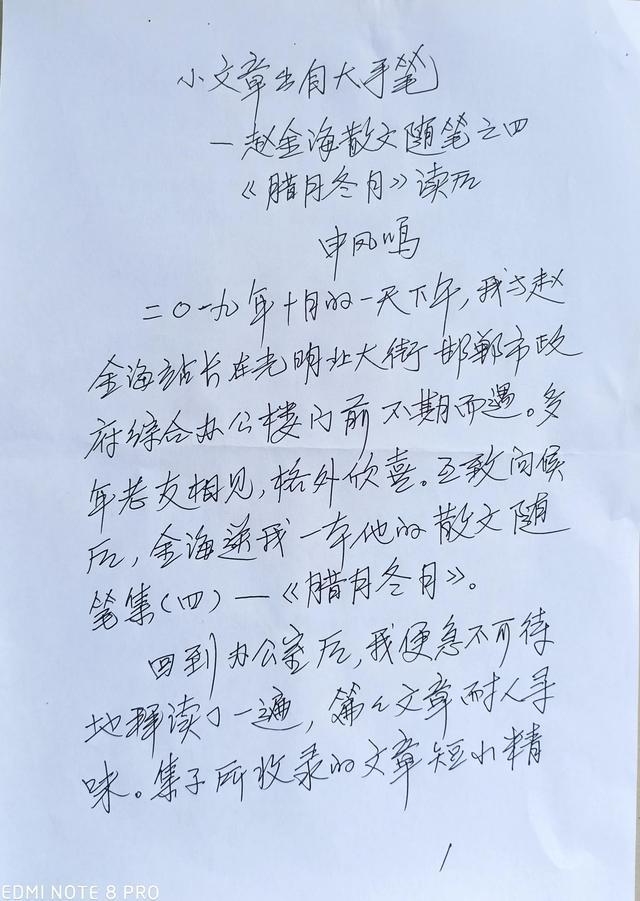 小文章出自大手笔
—赵金海散文随笔之四
《腊月冬月》读后
申凤鸣
二〇一九年十月的一天下午，我与赵
金海站长在光明北大街邯郸市政
府综合办公楼门前不期而遇。多
年老友相见，格外欣喜。互致问候
后，金海送我一本他的散文随
笔集（四）—《腊月冬月》。
回到办公室后，我便急不可待
地拜读了一遍，篇々文章耐人寻
味。集子所收录的文章短小精
1
EDMI NOTE 8 PRO